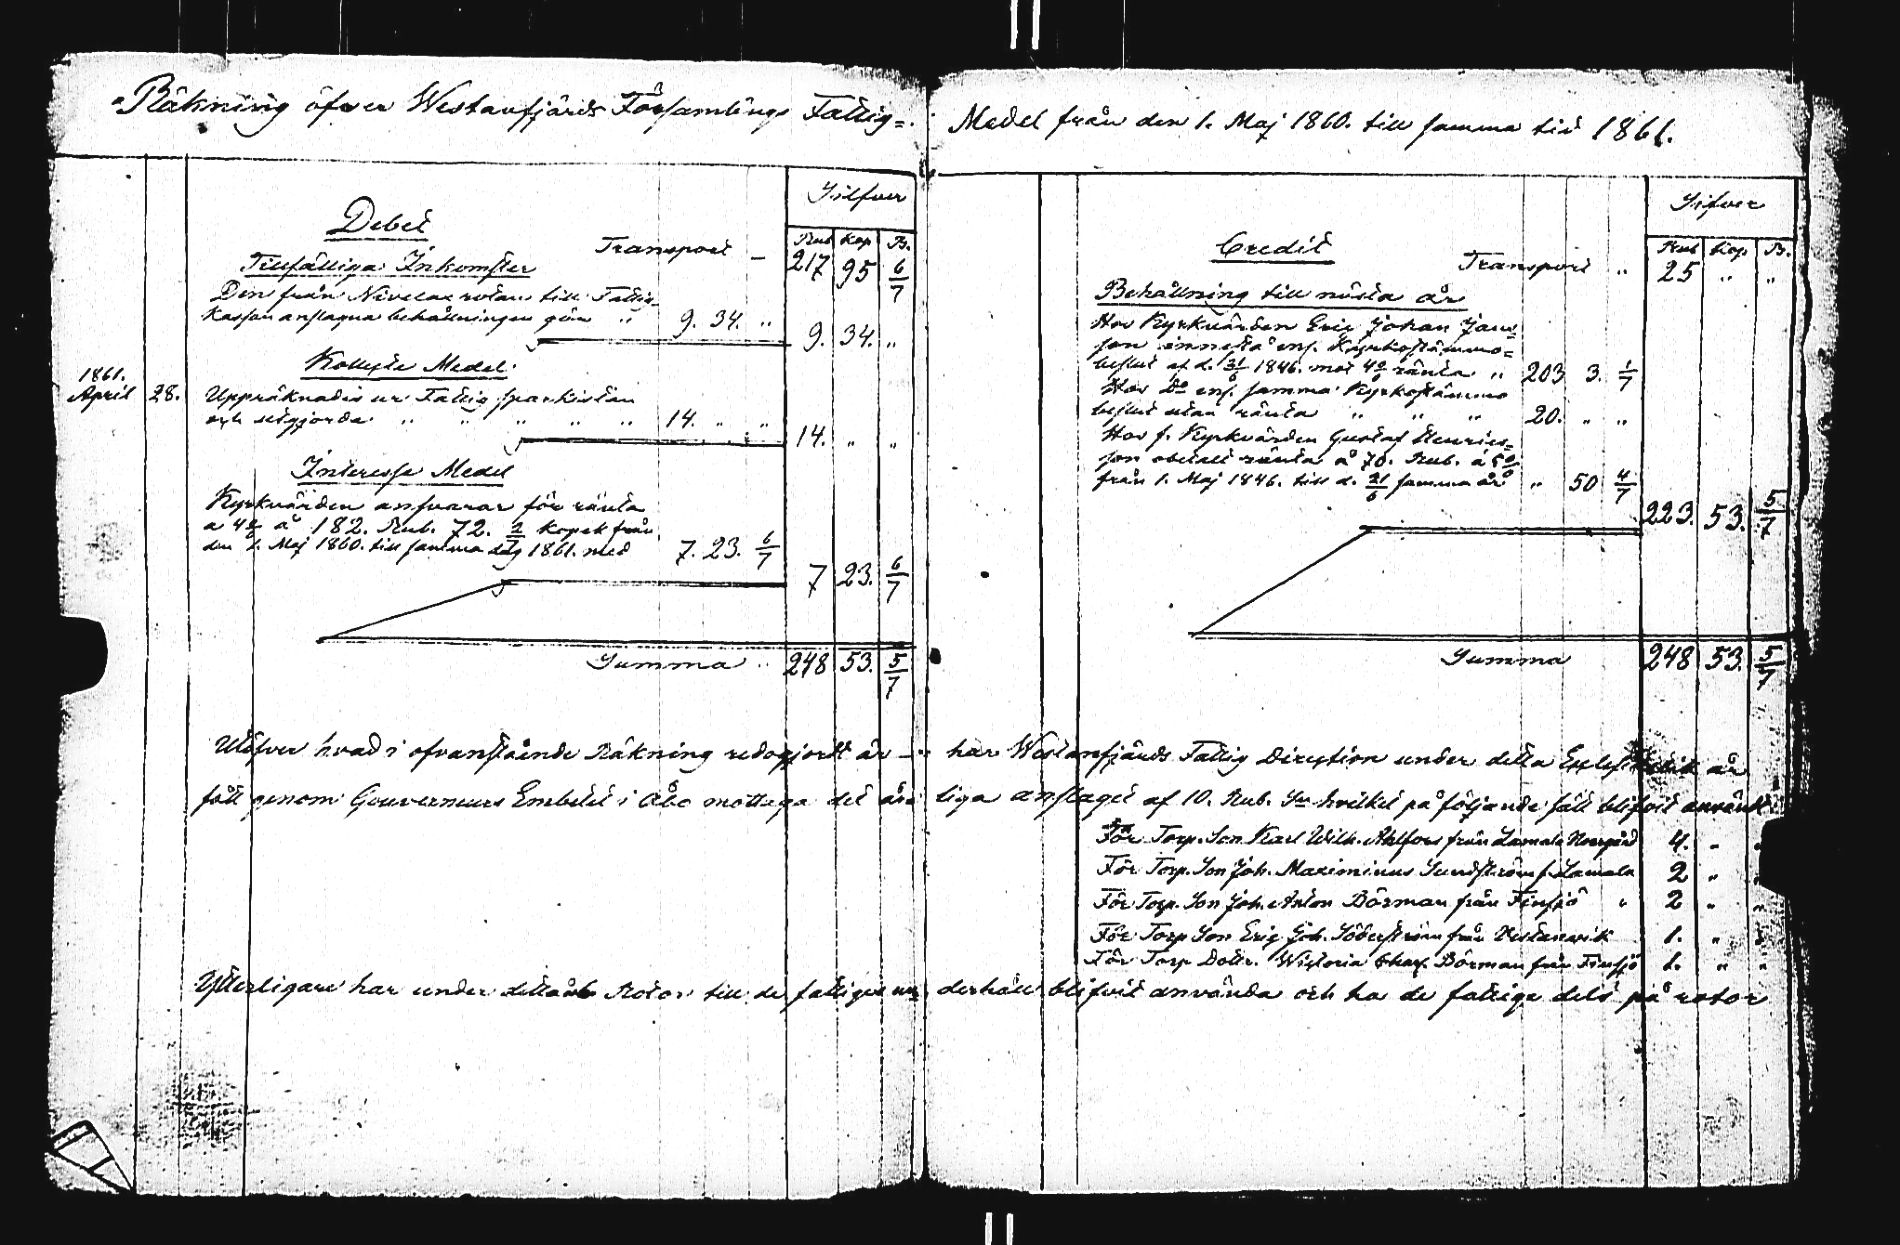 Räkning öfver Westanfjärds Församlings Fattig=
Silfver
Debet
Rub Kop B.
Transport — 217 95 6/7
Tillfälliga Inkomster
Den från Nivelax rotan till Fattig
Kassan anslagna behållningen gör " 9. 34. "
9. 34. "
Kollekte Medel.
1861.
April 28. Uppräknades ur Fattig sparkistan
och utgjorde " " " " " 14. " "
14. " "
Interesse Medel
Kyrkvärden ansvarar för ränta
a 4% å 182. Rub. 72. 2/7 kopek från
den 1. Maj 1860. till samma dag 1861. med 7. 23. 6/7
7 23. 6/7
Summa " 248 53. 5/7
Medel från den 1. Maj 1860. till samma tid 1861.
Silfver
Credit
Rub Kop. B.
Transport " 25 " "
Behållning till nästa år
Hos Kyrkvärden Eric Johan Jans=
son innestå enl. Kyrkostämmo=
beslut af d. 21/6 1846. mot 4% ränta " 203 3. 1/7
Hos Do enl. samma Kyrkostämmo
beslut utan ränta " " " 20. " "
Hos f. Kyrkvärden Gustaf Henrics=
son obetalt ränta å 70. Rub. á 5%
från 1. Maj 1846. till d. 21/6 samma år " 50 4/7
223. 53. 5/7
Summa 248 53. 5/7
Utöfver hvad i ofvanstående Räkning redogjordt är — har Westanfjärds Fattig Direktion under detta år
fått genom Gouverneurs Embetet i Åbo mottaga det årliga anslaget af 10. Rub. Sr hvilket på följande sätt blifvit användt:
För Torp. Son Karl Wilh. Ahlfors från Lamala Norrgård 4. " "
För Torp. Son Joh. Maximinus Sundström f. Lamala 2 " "
För Torp. Son Joh. Anton Börman från Finsjö " 2 " "
För Torp Son Eric Joh. Söderström från Vestanvik 1. " "
För Torp Dotr. Wictoria Börman från Finsjö 1. " "
Ytterligare har under detta år Rotor till de fattiges underhåll blifvit använda och ha de fattige dels på rotor